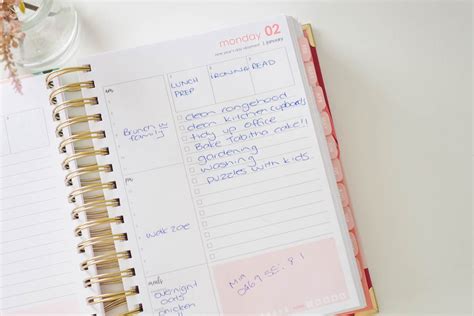 monday 02
january
LUNCH PREP
IRONING
READ
am
Brunch w
family
clean rangehood
clean kitchen cupboards
tidy up office
Bake Tabitha cake!!
gardening
washing
puzzles with kids.
pm
walk zoe
meals
overnight
oats
chicken